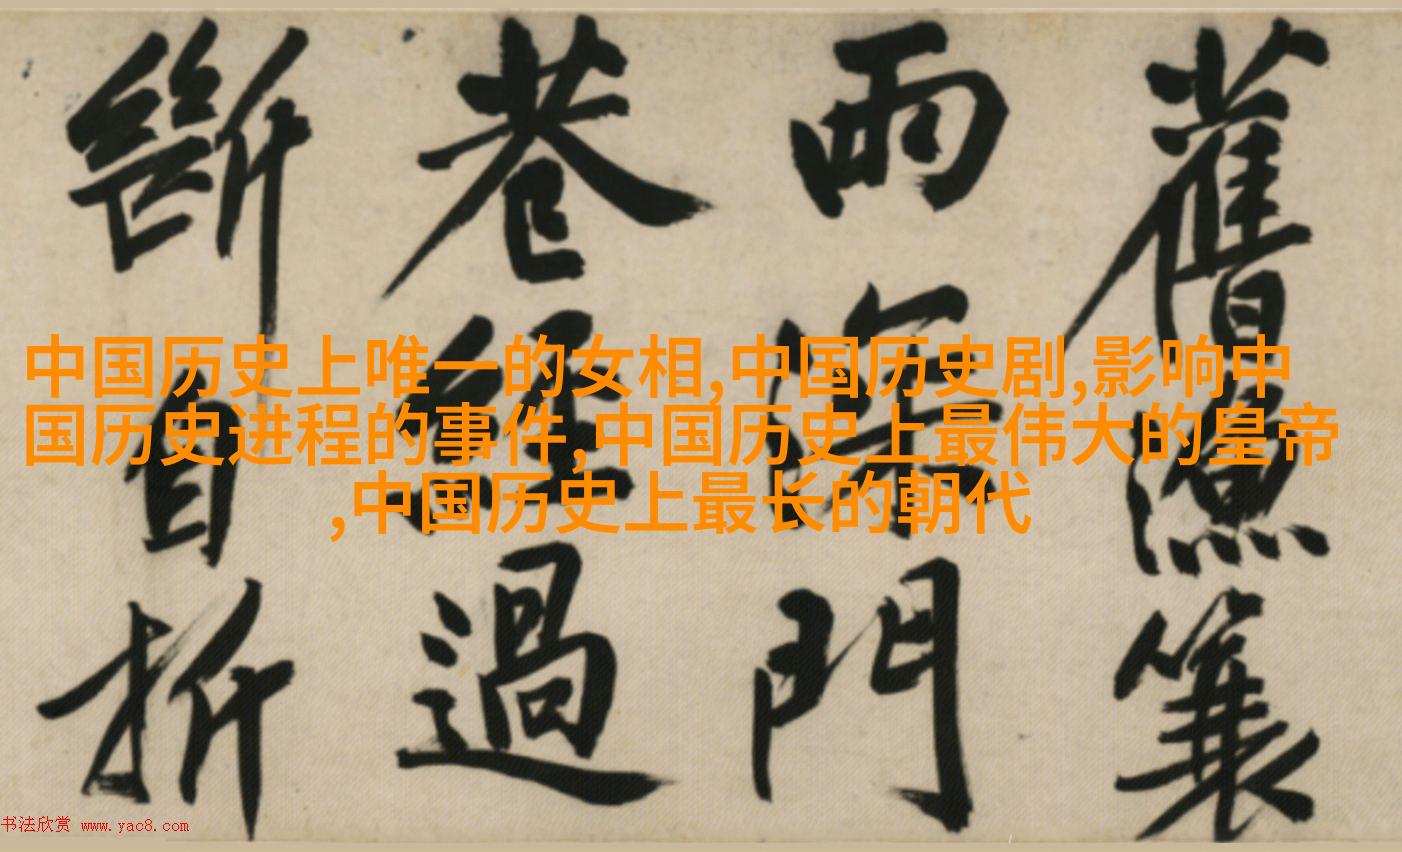 舊漁簑
雨深門
巷經過
斷自折
中国历史上唯一的女相,中国历史剧,影响中
国历史进程的事件,中国历史上最伟大的皇帝
,中国历史上最长的朝代
书法欣赏 www.yac8.com